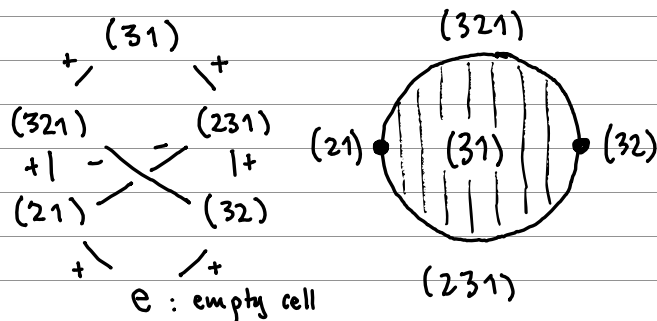 (31)
+ +
(321) (231)
+ - - +
(21) (32)
+ +
e : empty cell
(321)
(21) (31) (32)
(231)